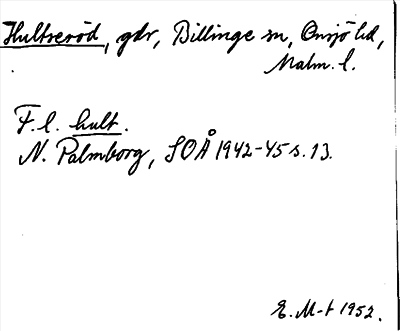 Hultseröd, gdr, Billinge sn, Onsjö hd,
Malm. l.
F. l. hult.
N. Palmborg, SOÅ 1942-45 s. 13.
E. M-t 1952.